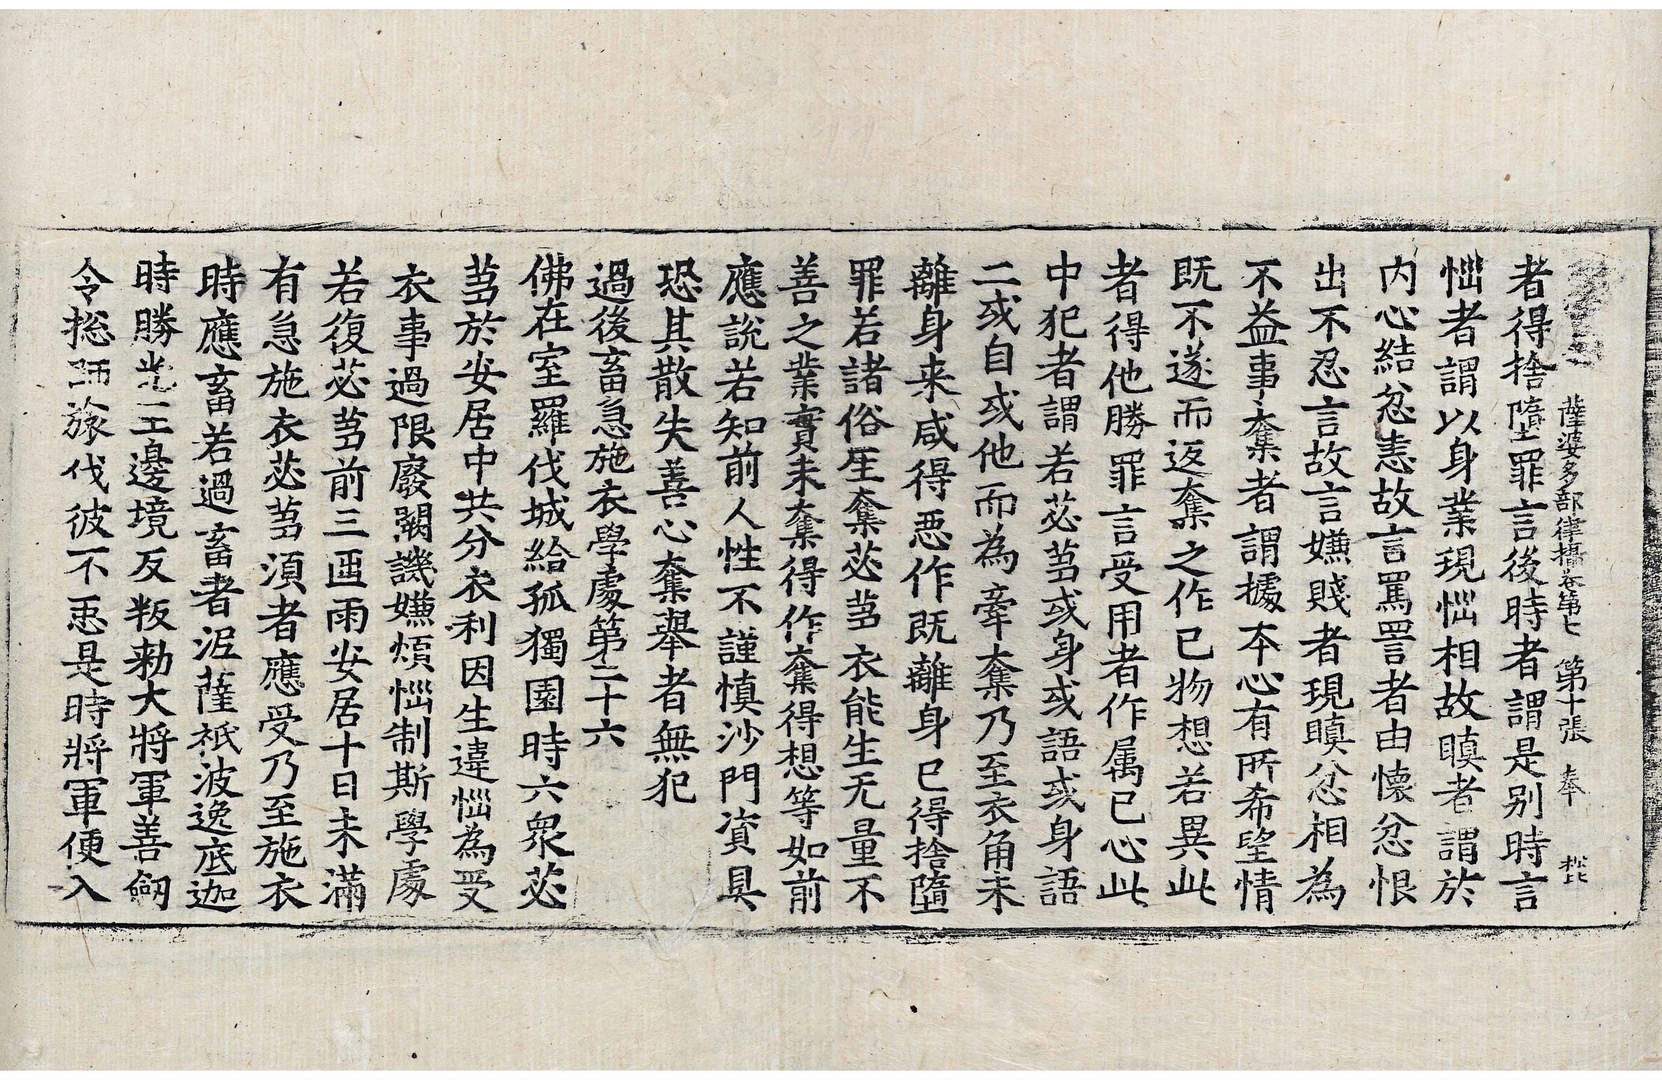 薩婆多部律攝卷第七 第十張 奉
者得捨墮罪言後時者謂是別時言
惱者謂以身業現惱相故瞋者謂於
内心結忿恚故言罵詈者由懷忿恨
出不忍言故言嫌賤者現瞋忿相為
不益事奪者謂據本心有所希望情
既不遂而返奪之作已物想若異此
者得他勝罪言受用者作属已心此
中犯者謂若苾蒭或身或語或身語
二或自或他而為牽奪乃至衣角未
離身来咸得惡作既離身已得捨墮
罪若諸俗生奪苾蒭衣能生无量不
善之業實未奪得作奪得想等如前
應說若知前人性不謹慎沙門資具
恐其散失善心奪舉者無犯
過後畜急施衣學處第二十六
佛在室羅伐城給孤獨園時六衆苾
蒭於安居中共分衣利因生違惱為受
衣事過限廢闕譏嫌煩惱制斯學處
若復苾蒭前三迊雨安居十日未滿
有急施衣苾蒭須者應受乃至施衣
時應畜若過畜者泥薩祇波逸底迦
時勝光王邊境反叛勅大將軍善劒
令捴師旅伐彼不恶是時將軍便入